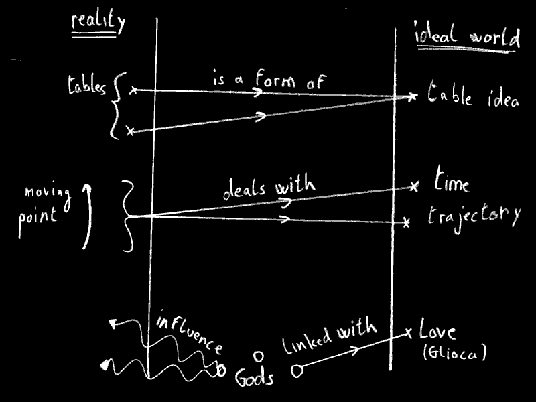 reality
ideal world
tables
is a form of
table idea
moving
point
deals with
time
trajectory
influence
Gods
linked with
Love
(Glioca)